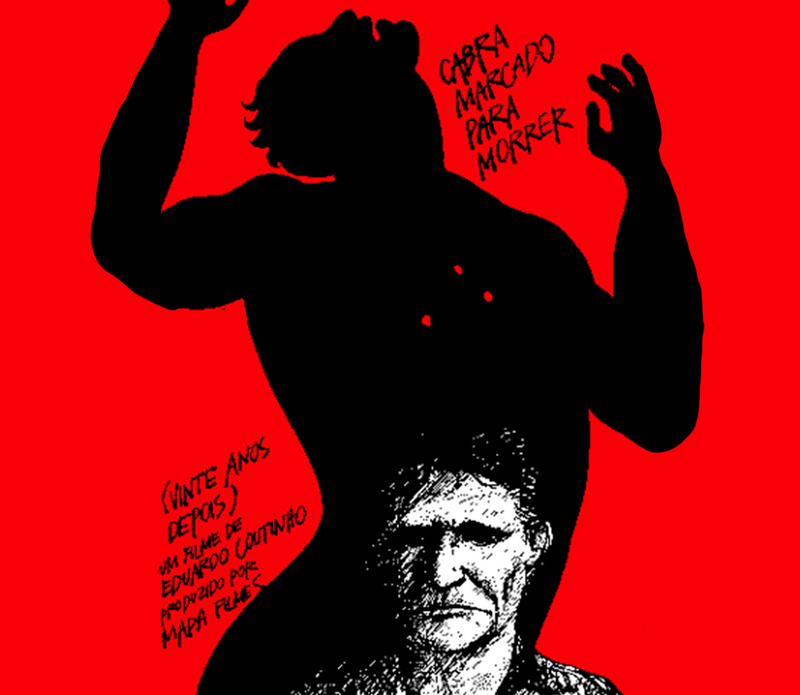 CABRA
MARCADO
PARA
MORRER
(VINTE ANOS
DEPOIS)
UM FILME DE
EDUARDO COUTINHO
PRODUZIDO POR
MAPA FILMES